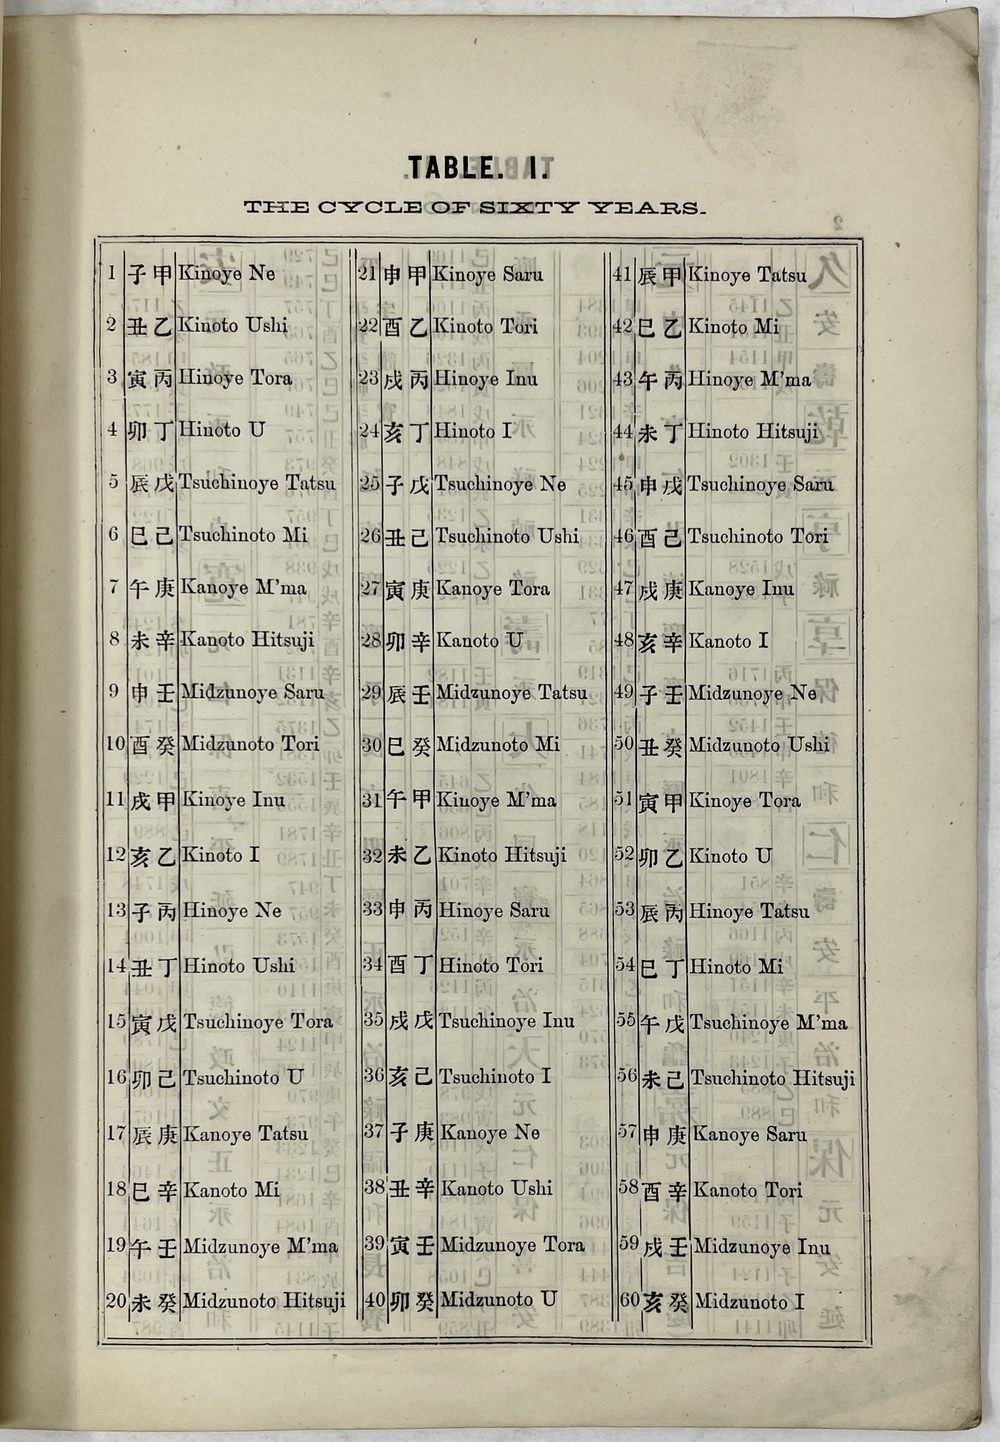 TABLE. I.
THE CYCLE OF SIXTY YEARS.
1 子甲 Kinoye Ne
2 丑乙 Kinoto Ushi
3 寅丙 Hinoye Tora
4 卯丁 Hinoto U
5 辰戊 Tsuchinoye Tatsu
6 巳己 Tsuchinoto Mi
7 午庚 Kanoye M'ma
8 未辛 Kanoto Hitsuji
9 申壬 Midzunoye Saru
10 酉癸 Midzunoto Tori
11 戌甲 Kinoye Inu
12 亥乙 Kinoto I
13 子丙 Hinoye Ne
14 丑丁 Hinoto Ushi
15 寅戊 Tsuchinoye Tora
16 卯己 Tsuchinoto U
17 辰庚 Kanoye Tatsu
18 巳辛 Kanoto Mi
19 午壬 Midzunoye M'ma
20 未癸 Midzunoto Hitsuji
21 申甲 Kinoye Saru
22 酉乙 Kinoto Tori
23 戌丙 Hinoye Inu
24 亥丁 Hinoto I
25 子戊 Tsuchinoye Ne
26 丑己 Tsuchinoto Ushi
27 寅庚 Kanoye Tora
28 卯辛 Kanoto U
29 辰壬 Midzunoye Tatsu
30 巳癸 Midzunoto Mi
31 午甲 Kinoye M'ma
32 未乙 Kinoto Hitsuji
33 申丙 Hinoye Saru
34 酉丁 Hinoto Tori
35 戌戊 Tsuchinoye Inu
36 亥己 Tsuchinoto I
37 子庚 Kanoye Ne
38 丑辛 Kanoto Ushi
39 寅壬 Midzunoye Tora
40 卯癸 Midzunoto U
41 辰甲 Kinoye Tatsu
42 巳乙 Kinoto Mi
43 午丙 Hinoye M'ma
44 未丁 Hinoto Hitsuji
45 申戊 Tsuchinoye Saru
46 酉己 Tsuchinoto Tori
47 戌庚 Kanoye Inu
48 亥辛 Kanoto I
49 子壬 Midzunoye Ne
50 丑癸 Midzunoto Ushi
51 寅甲 Kinoye Tora
52 卯乙 Kinoto U
53 辰丙 Hinoye Tatsu
54 巳丁 Hinoto Mi
55 午戊 Tsuchinoye M'ma
56 未己 Tsuchinoto Hitsuji
57 申庚 Kanoye Saru
58 酉辛 Kanoto Tori
59 戌壬 Midzunoye Inu
60 亥癸 Midzunoto I